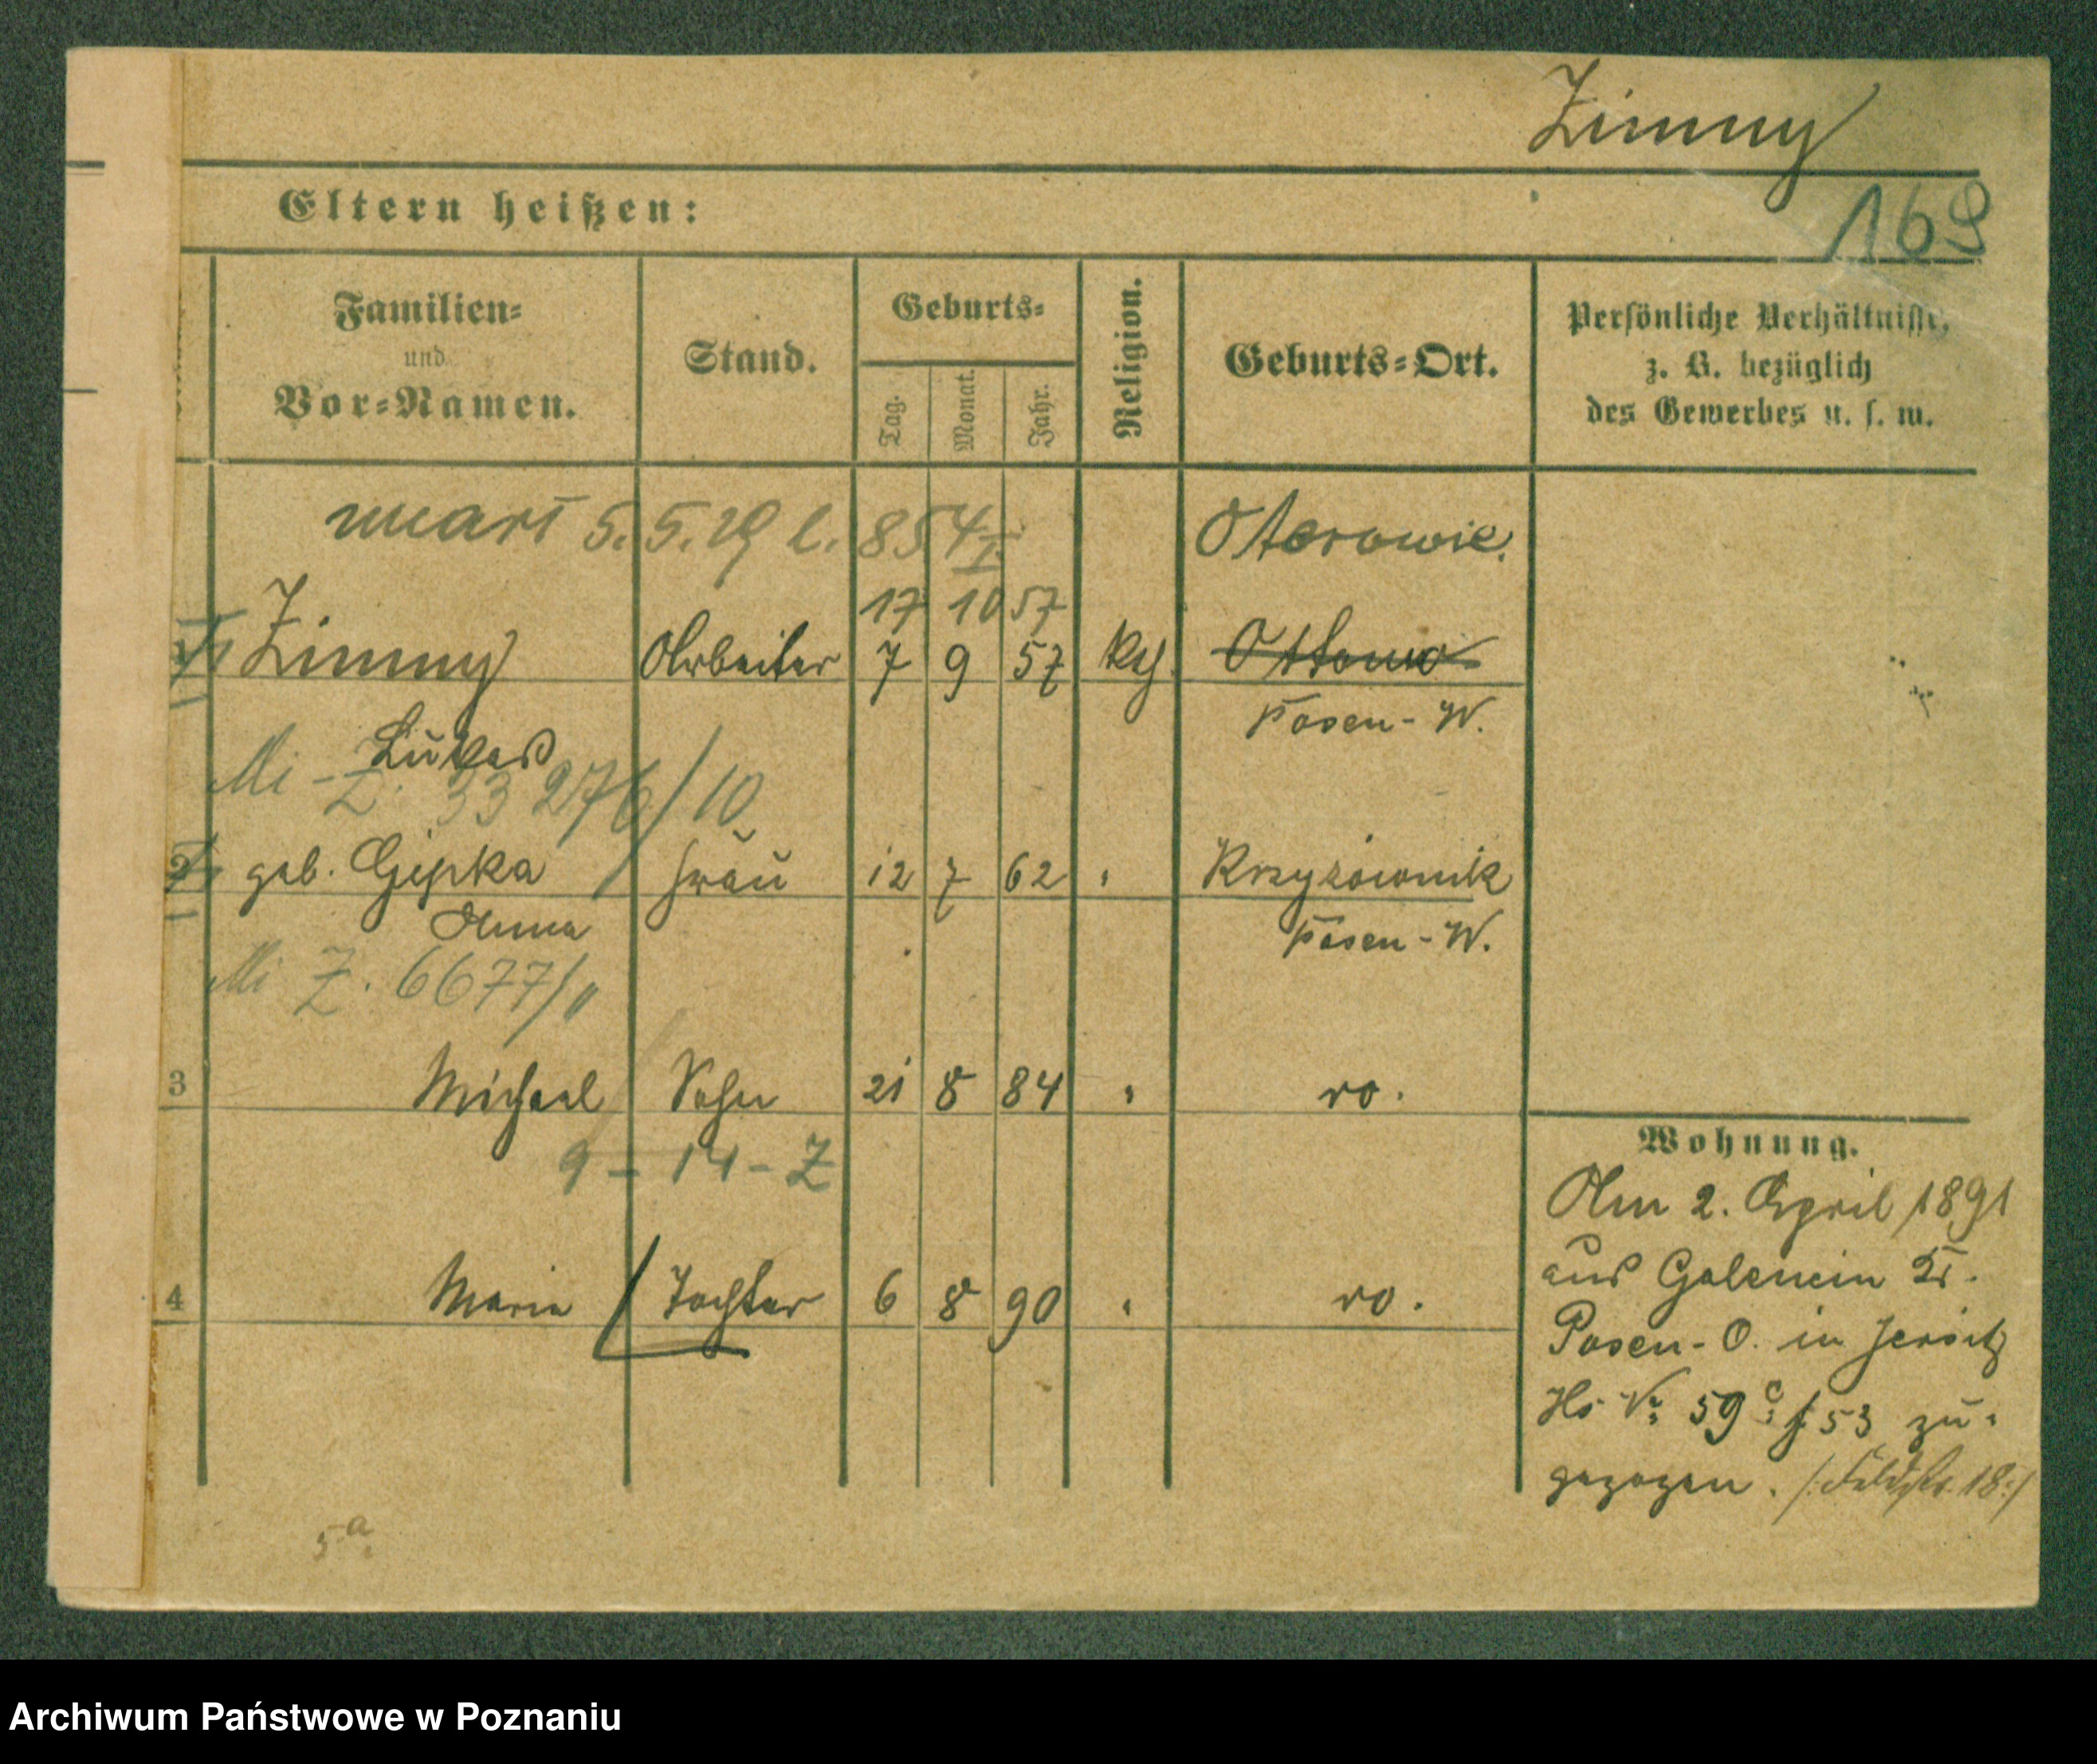 Zimny
169
Eltern heißen:
Familien-
und
Vor-Namen.
Stand.
Geburts-
Tag.
Monat.
Jahr.
Religion.
Geburts-Ort.
Persönliche Verhältnisse,
z. B. bezüglich
des Gewerbes u. s. w.
umarł 5.5.19 l. 854 I
Oterowie.
17 10 57
1 Zimny Arbeiter 7 9 57 kth Ottowo
Posen-W.
Lukas
Mi-Z. 33276/10
2 geb. Gipka Frau 12 7 62 " Krzyzownik
Anna
Posen-W.
Mi Z. 6677/11
3 Michael Sohn 21 8 84 " ro.
9-14-Z
4 Maria Tochter 6 8 90 " ro.
Wohnung.
Am 2. April 1891
aus Golencin Kr.
Posen-O. in Jersitz
Hs No. 59 c f 53 zu-
gezogen. /: Feldstr. 18:/
5 a.
Archiwum Państwowe w Poznaniu